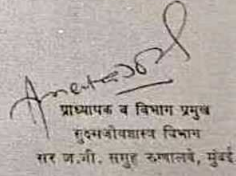 प्राध्यापक व विभाग प्रमुख
सुक्ष्मजीवशास्त्र विभाग
सर ज.जी. समुह रुग्णालये, मुंबई